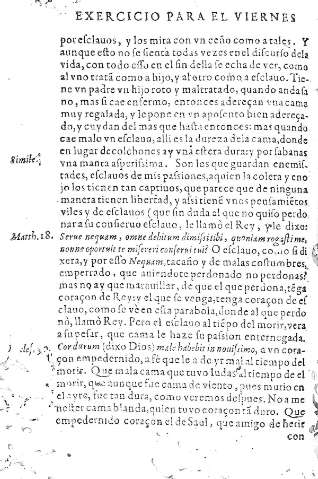 EXERCICIO PARA EL VIERNES
por esclauos, y los mira con vn ceño como a tales. Y
aunque esto no se sienta todas vezes en el discurso dela
vida, con todo esso en el fin della se echa de ver, como
al vno tratá como a hijo, y al otro como a esclauo. Tie-
ne vn padre vn hijo roto y maltratado, quando anda sa
no, mas si cae enfermo, entonces adereçan vna cama
muy regalada, y le pone en vn aposento bien adereça-
do, y cuydan del mas que hasta entonces: mas quando
cae malo vn esclauo, alli es la dureza dela cama, donde
en lugar de colchones ay vna estera dura: y por sabanas
Simile.
vna manta asperissima. Son les que guardan enemis-
tades, esclauos de mis passiones, a quien la colera y eno
jo los tienen tan captiuos, que parece que de ninguna
manera tienen libertad, y assi tiene vnos pensamiẽtos
viles y de esclauos (que sin duda al que no quiso perdo
nar a su consieruo esclauo, le llamò el Rey, y le dixo:
Matth. 18.
Serue nequam, omne debitum dimisi tibi, quoniam rogasti me,
nonne oportuit te misereri conserui tui? O esclauo, como si di
xera, y por esso Nequam, tacaño y de malas costumbres,
emperrado, que auiendote perdonado no perdonas?
mas no ay que marauillar, de que el que perdona, tẽga
coraçon de Rey: y el que se venga, tenga coraçon de es
clauo, como se vè en esta parabola, donde al que perdo
nò, llamò Rey. Pero el esclauo al tiẽpo del morir, vera
a su pesar, que cama le haze su passion enternegada.
Cor durum (dixo Dios) male habebit in nouissimo, a vn cora-
çon empedernido, a fè que le a de yr mal al tiempo del
morir. Que mala cama que tuuo Iudas al tiempo de el
morir, que aunque fue cama de viento, pues murio en
el ayre, fue tan dura, como veremos despues. No a me
nester cama blanda, quien tuuo coraçon tã duro. Que
empedernido coraçon el de Saul, que amigo de herir
con